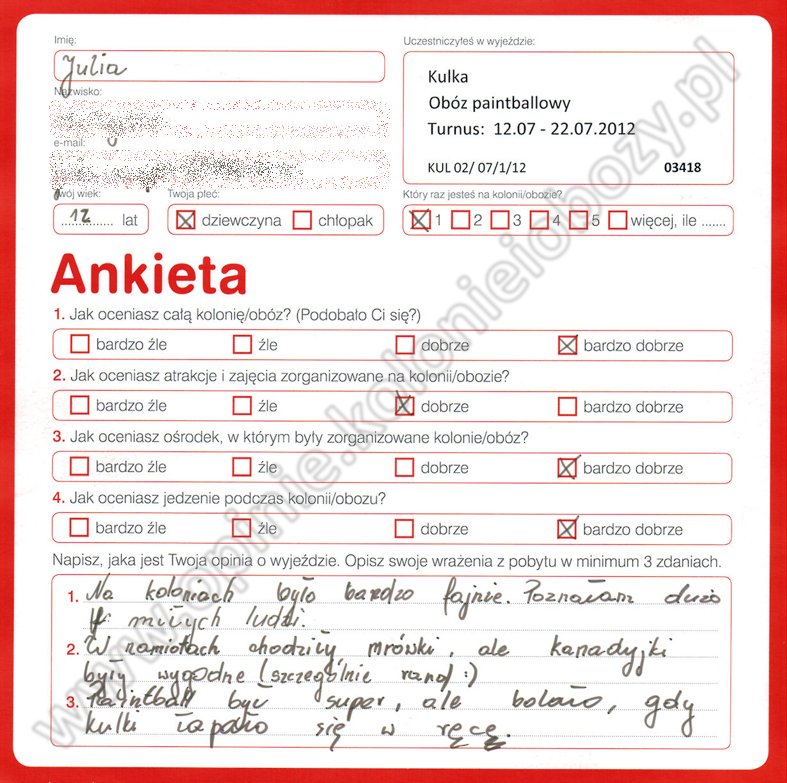 Imię:
Julia
Nazwisko:
e-mail:
Twój wiek:
12 lat
Twoja płeć:
dziewczyna chłopak
Uczestniczyłeś w wyjeździe:
Kulka
Obóz paintballowy
Turnus: 12.07 - 22.07.2012
KUL 02/ 07/1/12 03418
Który raz jesteś na kolonii/obozie?
1 2 3 4 5 więcej, ile .......
Ankieta
1. Jak oceniasz całą kolonię/obóz? (Podobało Ci się?)
bardzo źle źle dobrze bardzo dobrze
2. Jak oceniasz atrakcje i zajęcia zorganizowane na kolonii/obozie?
bardzo źle źle dobrze bardzo dobrze
3. Jak oceniasz ośrodek, w którym były zorganizowane kolonie/obóz?
bardzo źle źle dobrze bardzo dobrze
4. Jak oceniasz jedzenie podczas kolonii/obozu?
bardzo źle źle dobrze bardzo dobrze
Napisz, jaka jest Twoja opinia o wyjeździe. Opisz swoje wrażenia z pobytu w minimum 3 zdaniach.
1. Na koloniach było bardzo fajnie. Poznałam dużo
miłych ludzi.
2. W namiotach chodziły mrówki, ale kanadyjki
były wygodne (szczególnie rano :)
3. Paintball był super, ale bolało, gdy
kulki łapało się w ręcę.
www.opinie.kolonieiobozy.pl